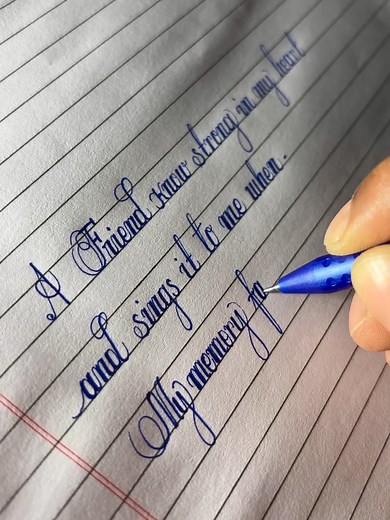 A Friend know strong in my heart
and sings it to me when.
My memory fa